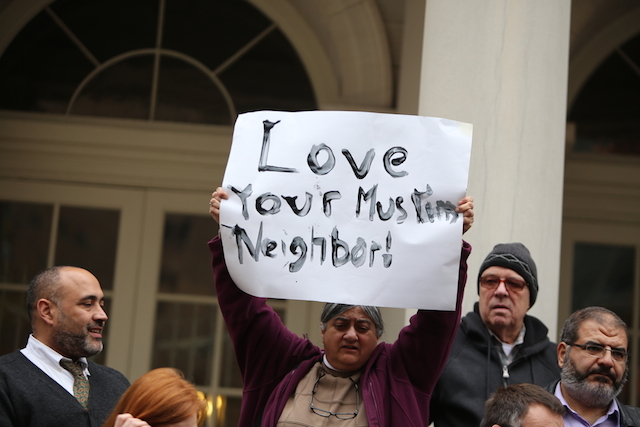 Love
Your Muslim
Neighbor!